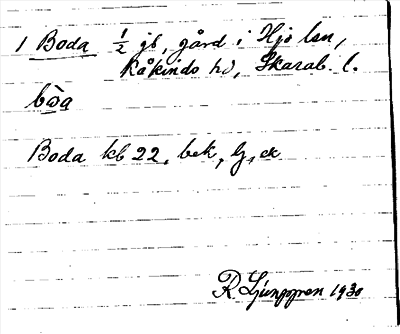 1 Boda ½ gd, gård i Hjo lsn,
Kåkinds hd, Skarab. l.
bòa
Boda kb 22, bek,
R. Ljunggren 1930